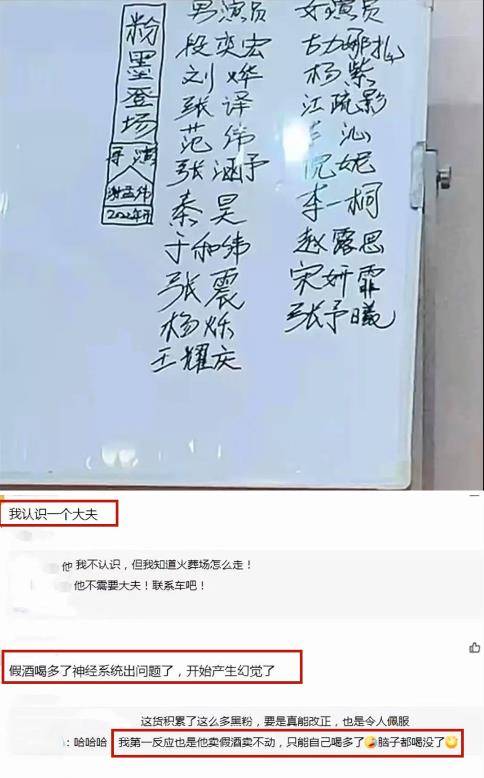 粉墨登场
导演
谢孟伟
2022年
男演员
段奕宏
刘烨
张译
范伟
张涵予
秦昊
于和伟
张震
杨烁
王耀庆
女演员
古力娜扎
杨紫
江疏影
沁
倪妮
李一桐
赵露思
宋妍霏
张予曦
我认识一个大夫
他 我不认识，但我知道火葬场怎么走！
他不需要大夫！联系车吧！
假酒喝多了神经系统出问题了，开始产生幻觉了
这货积累了这么多黑粉，要是真能改正，也是令人佩服
：哈哈哈 我第一反应也是他卖假酒卖不动，只能自己喝多了🤣脑子都喝没了😆